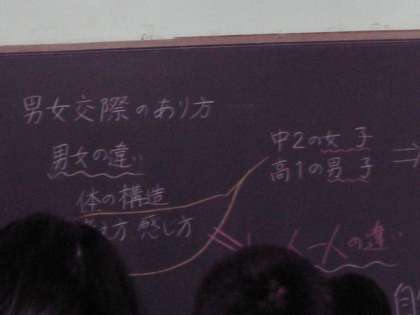 男女交際のあり方
男女の違い
体の構造
え方 感じ方
中2の女子
高1の男子
⇒
一人一人の違い
自